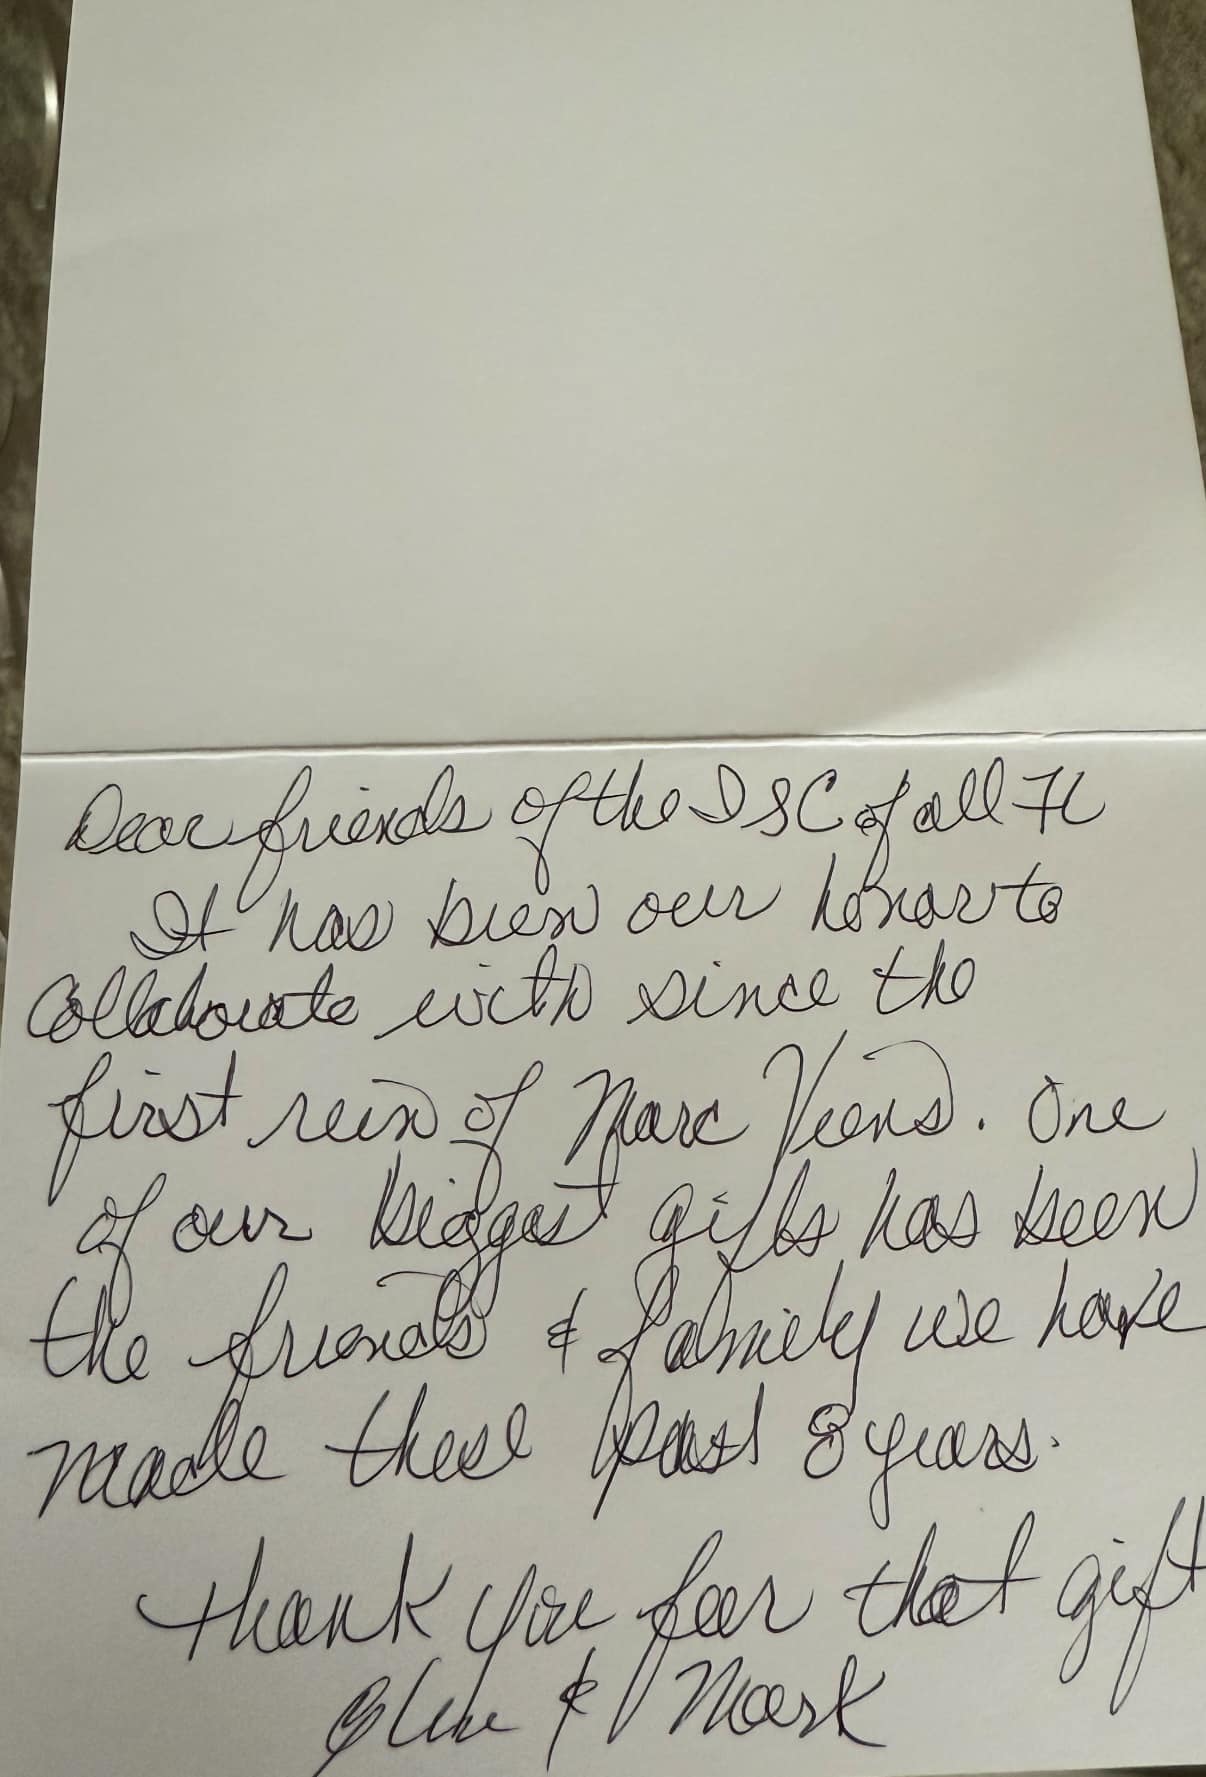 Dear friends of the ISC of all FL
It has been our honor to
Collaborate with since the
first rein of Marc Viens. One
of our biggest gifts has been
the friends & family we have
made these past 8 years.
Thank you for that gift
& Mark